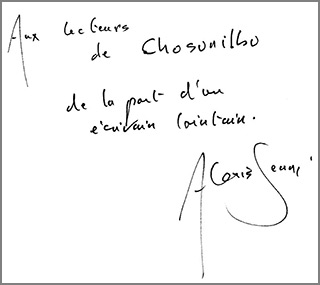 Aux lecteurs
de Chosunilbo
de la part d'un
écrivain lointain.
Alexis Jenni